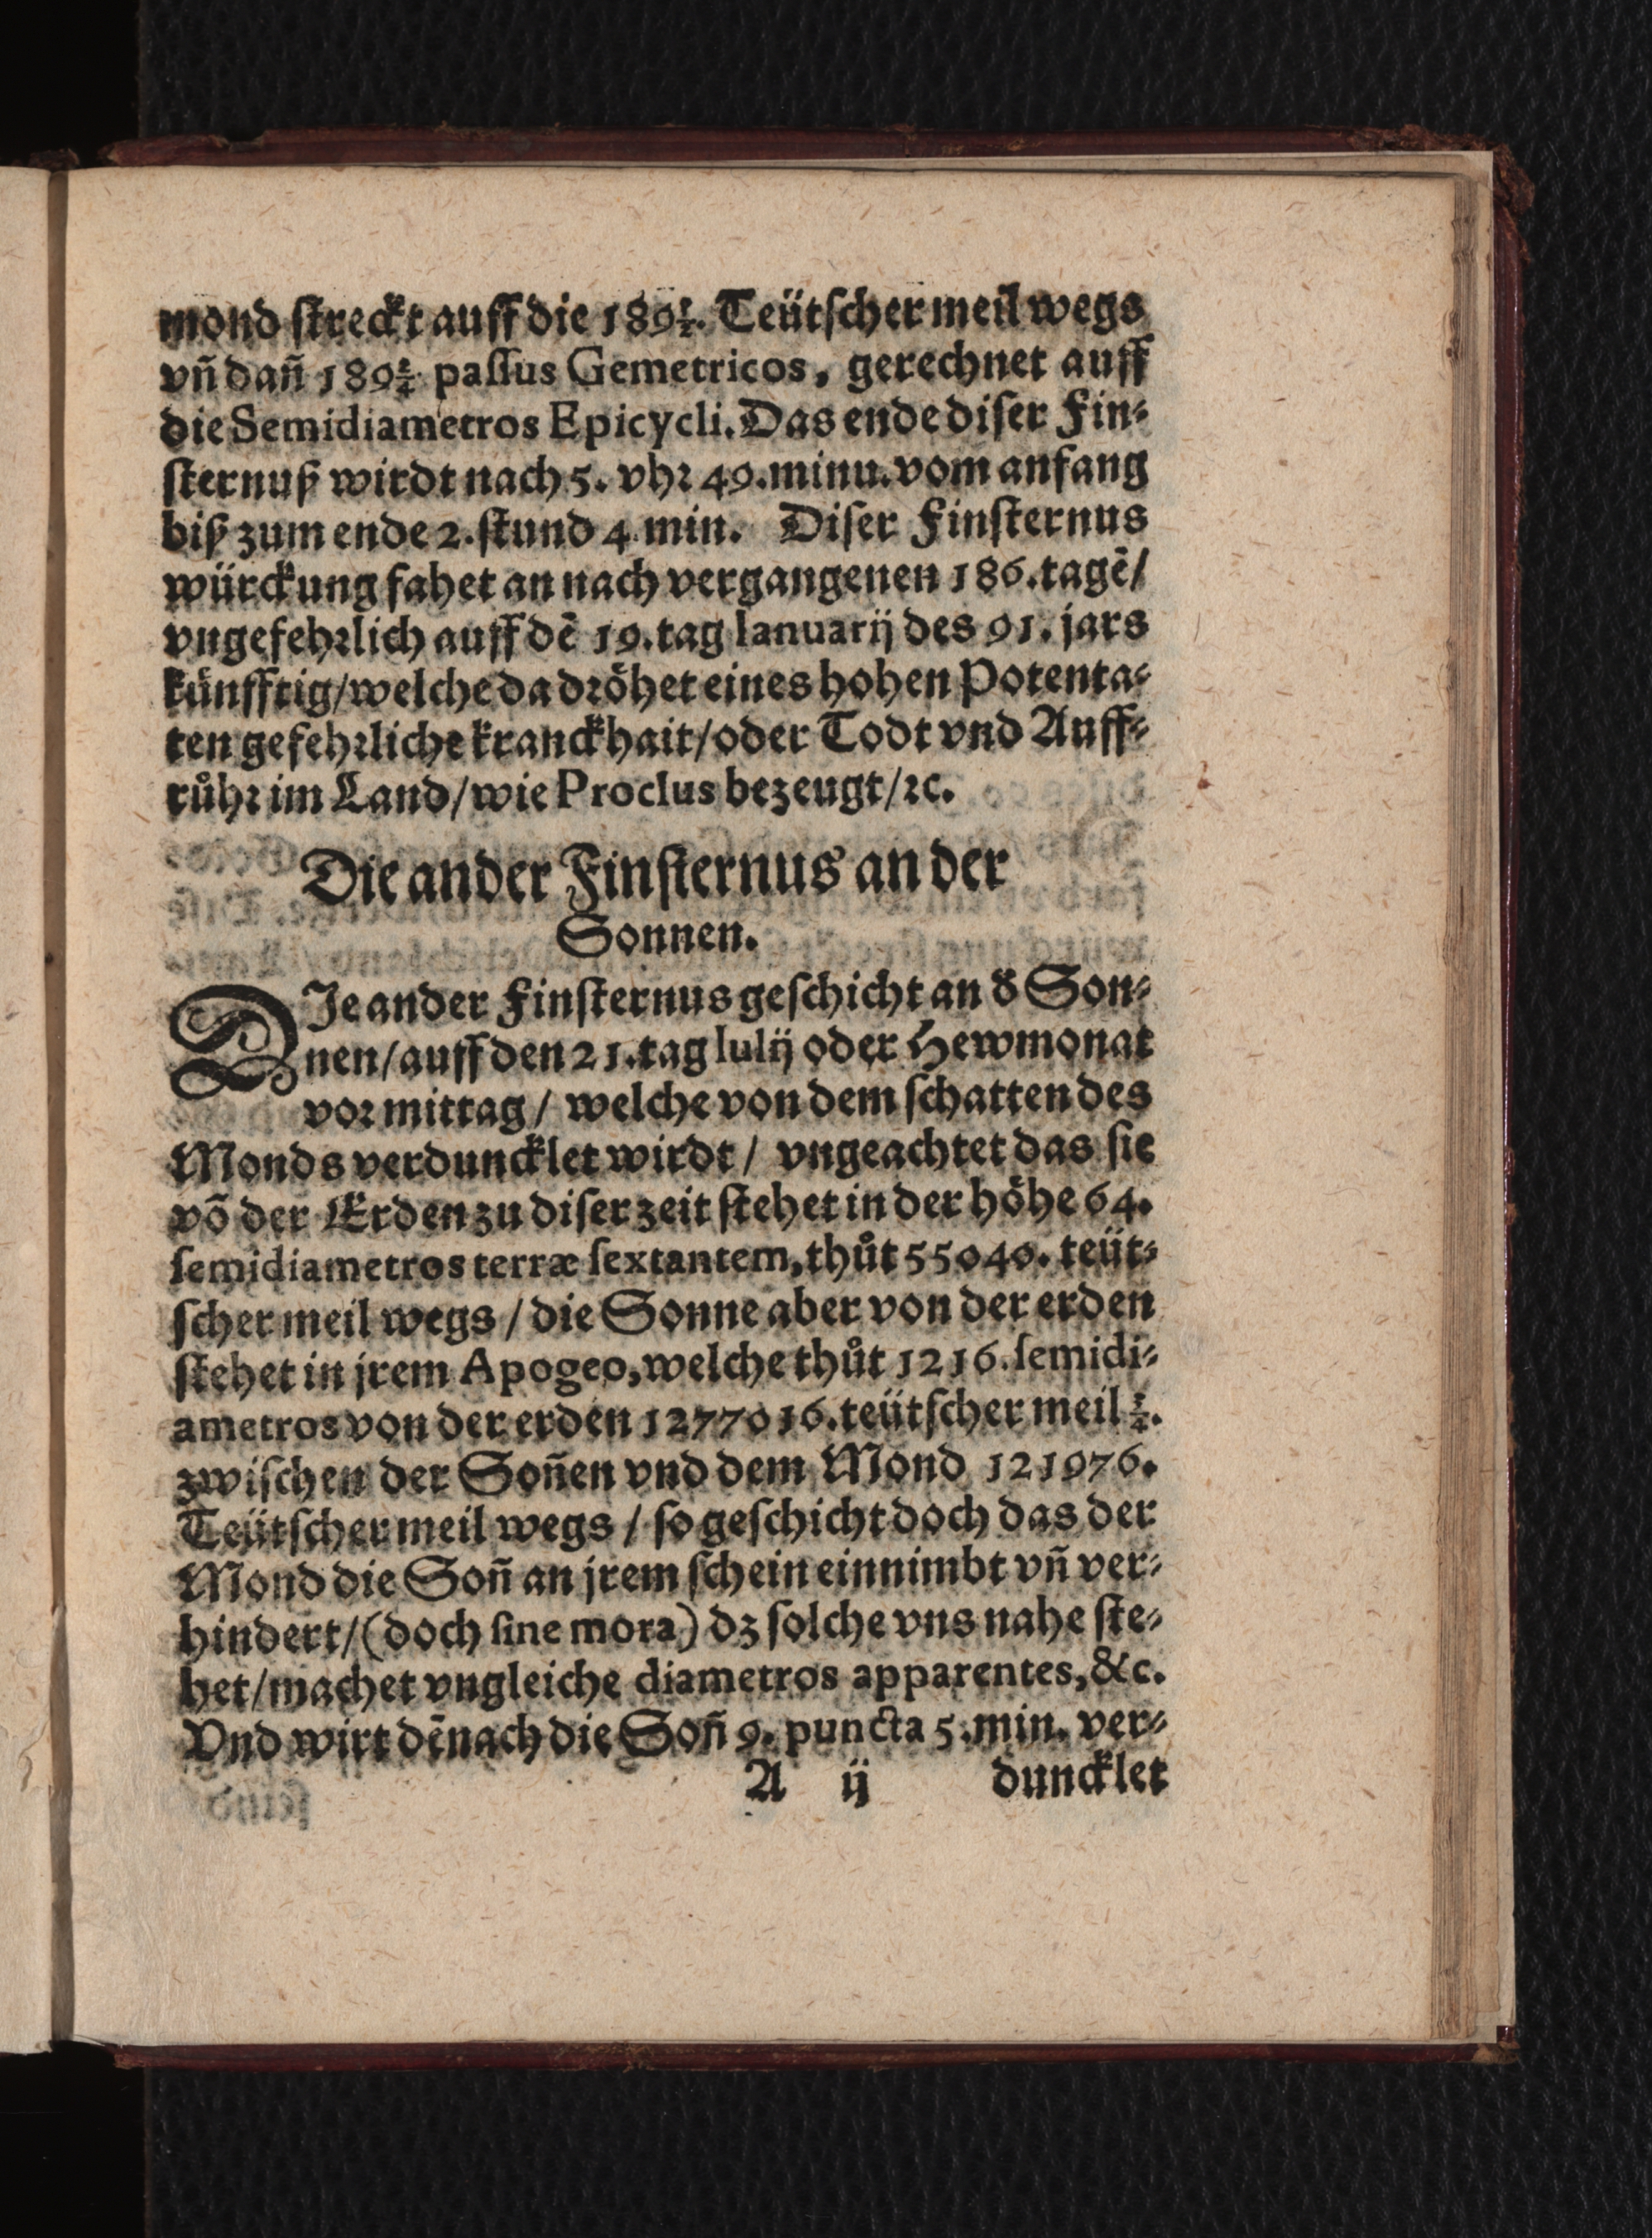 mond ſtreckt auff die 189½. Teütſcher meil wegs
vñ dañ 189¾ paſſus Gemetricos, gerechnet auff
die Semidiametros Epicycli. Das ende diſer Fin⸗
ſternuß wirdt nach 5. vhꝛ 49. minu. vom anfang
biß zum ende 2. ſtund 4 min. Diſer Finſternus
würckung fahet an nach vergangenen 186. tagē/
vngefehꝛlich auff dē 19. tag Ianuarij des 91. jars
künfftig/welche da dꝛöhet eines hohen Potenta⸗
ten gefehꝛliche kranckhait/oder Todt vnd Auff⸗
růhꝛ im Land/wie Proclus bezeugt/ꝛc.
Die ander Finſternus an der
Sonnen.
DIe ander Finſternus geſchicht an d̓ Son⸗
nen/auff den 21. tag Iulij oder Hewmonat
voꝛ mittag/ welche von dem ſchatten des
Monds verduncklet wirdt/ vngeachtet das ſie
võ der Erden zu diſer zeit ſtehet in der höhe 64.
ſemidiametros terræ ſextantem, thůt 55040. teüt⸗
ſcher meil wegs / die Sonne aber von der erden
ſtehet in jrem Apogeo, welche thůt 1216. ſemidi⸗
ametros von der erden 1277016. teütſcher meil ½.
zwiſchen der Soñen vnd dem Mond 121976.
Teütſcher meil wegs / ſo geſchicht doch das der
Mond die Soñ an jrem ſchein einnimbt vñ ver⸗
hindert/(doch ſine mora) dz ſolche vns nahe ſte⸗
het/machet vngleiche diametros apparentes, &c.
Vnd wirt dēnach die Soñ 9. puncta 5. min. ver⸗
A ij duncklet